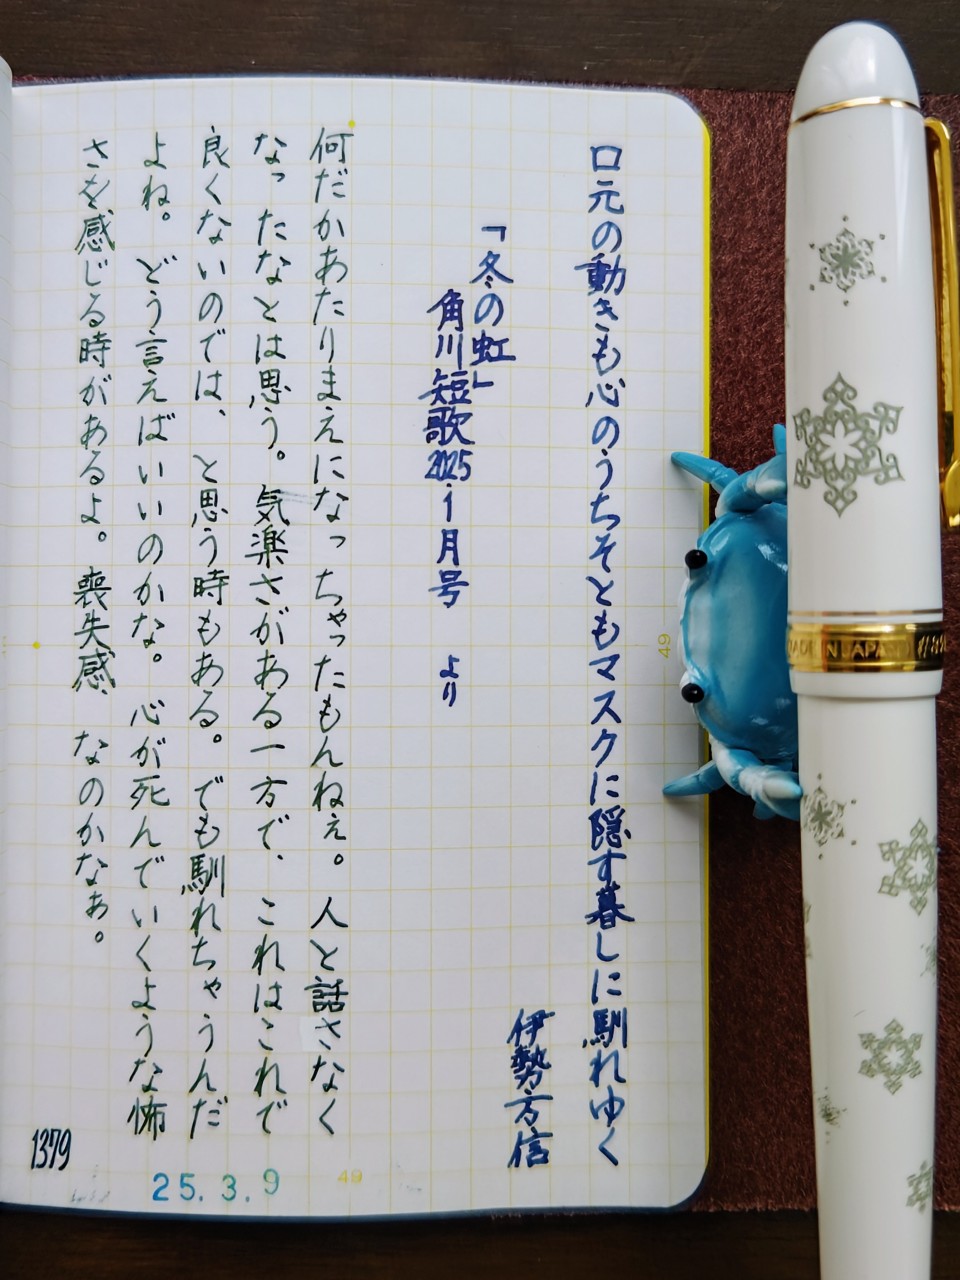 口元の動きも心のうちそともマスクに隠す暮しに馴れゆく
伊勢方信
「冬の虹」
角川短歌2025.1月号 より
何だかあたりまえになっちゃったもんねぇ。人と話さなく
なったなとは思う。気楽さがある一方で、これはこれで
良くないのでは、と思う時もある。でも馴れちゃうんだ
よね。どう言えばいいのかな。心が死んでいくような怖
さを感じる時があるよ。喪失感、なのかなぁ。
1379
25.3.9
49
49
MADE IN JAPAN